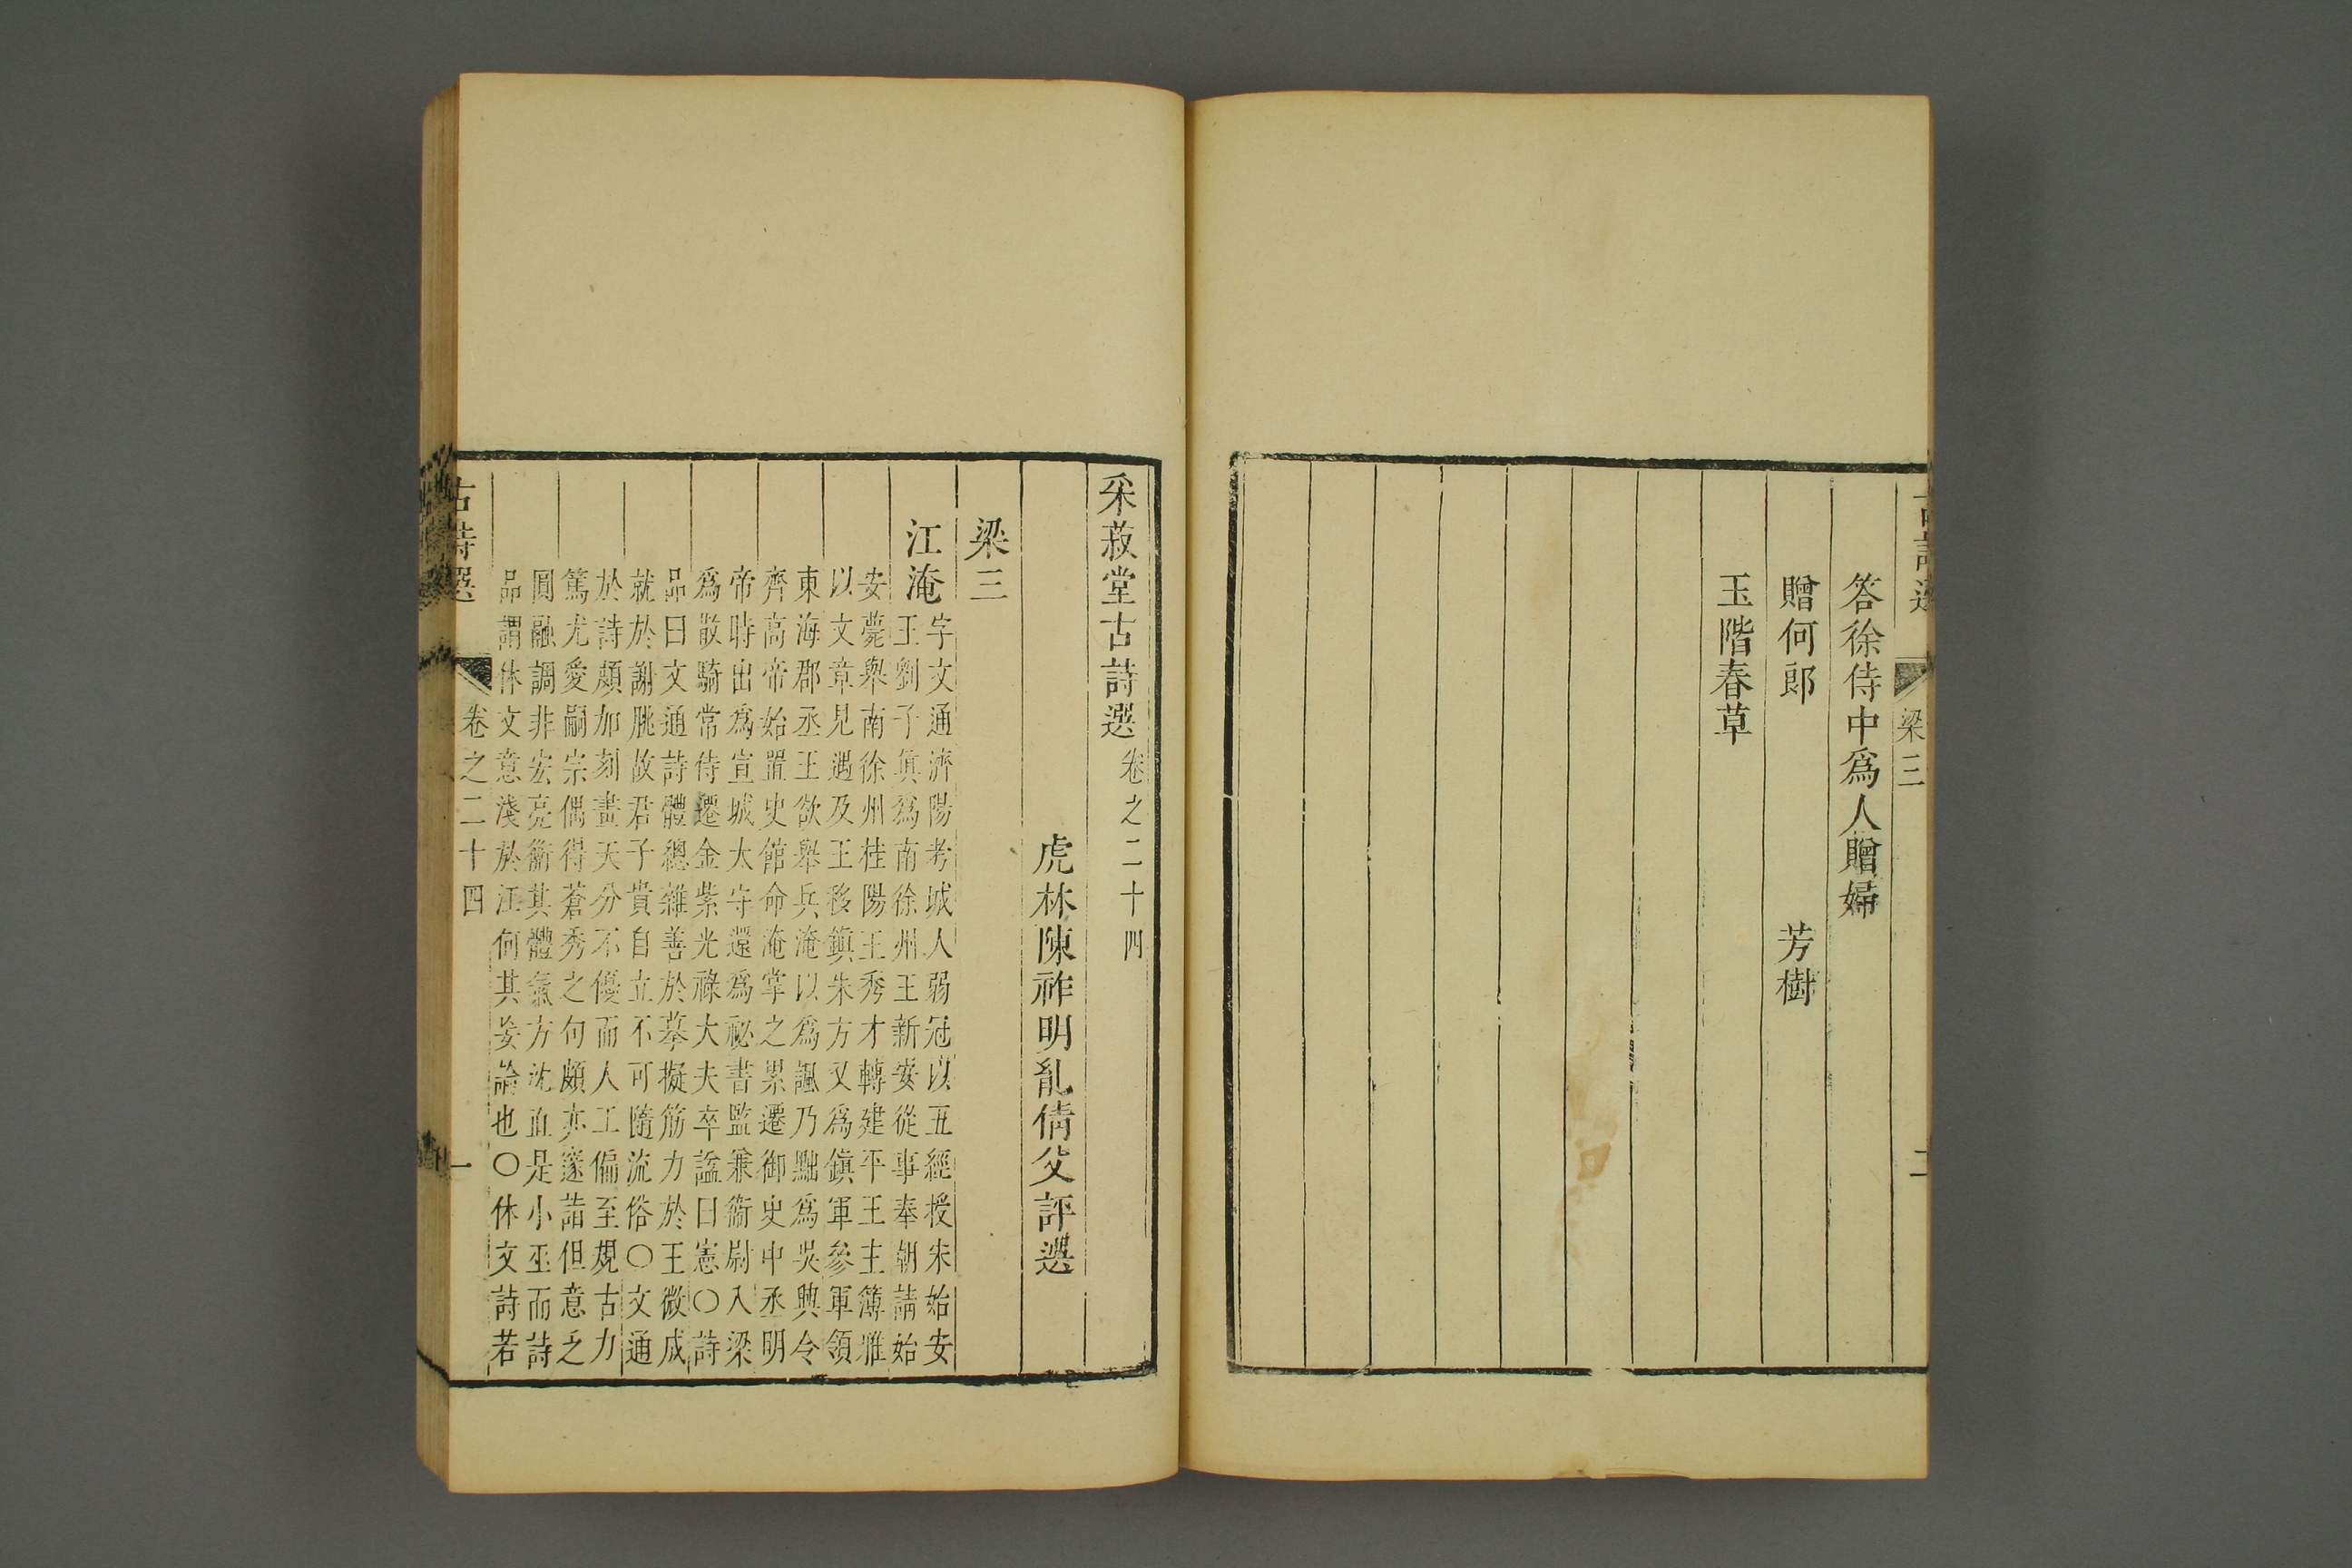 古詩選
梁三
二
答徐侍中爲人贈婦
贈何郎 芳樹
玉階春草
采菽堂古詩選卷之二十四
虎林陳祚明胤倩父評選
梁三
江淹
字文通濟陽考城人弱冠以五經授宋始安
王劉子眞爲南徐州王新安從事奉朝請始
安薨舉南徐州桂陽王秀才轉建平王主簿雅
以文章見遇及王移鎮朱方又爲鎮軍參軍領
東海郡丞王欲舉兵淹以爲諷乃黜爲吳興令
齊高帝始置史館命淹掌之累遷御史中丞明
帝時出爲宣城太守還爲祕書監兼衞尉入梁
爲散騎常侍遷金紫光祿大夫卒諡曰憲〇詩
品曰文通詩體總雜善於摹擬筋力於王微成
就於謝朓故君子貴自立不可隨流俗〇文通
於詩頗加刻畫天分不優而人工偏至規古力
篤尤愛嗣宗偶得蒼秀之句頗亦邃詣但意乏
圓融調非宏亮衞其體氣方沈血是小巫而詩
品謂休文意淺於江何其妄論也〇休文詩若
古詩選
卷之二十四
一